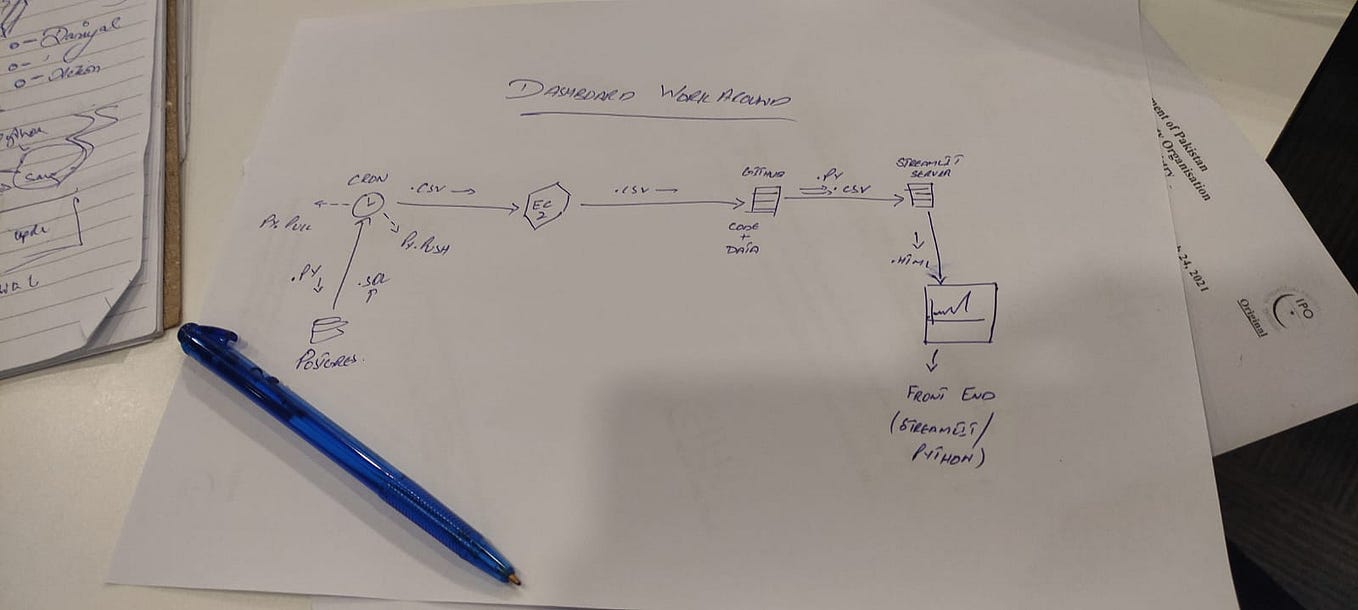 Danyal
Python
Save
DASHBOARD WORK AROUND
CRON
.CSV →
Py. Pull
Py. Push
.PY
.SQL
POSTGRES.
EC
2
.CSV →
GITHUB
CODE
+
DATA
.PY
.CSV
STREAMLIT
SERVER
.HTML
FRONT END
(STREAMLIT/
PYTHON)
ment of Pakistan
Organisation
24, 2021
IPO
Original